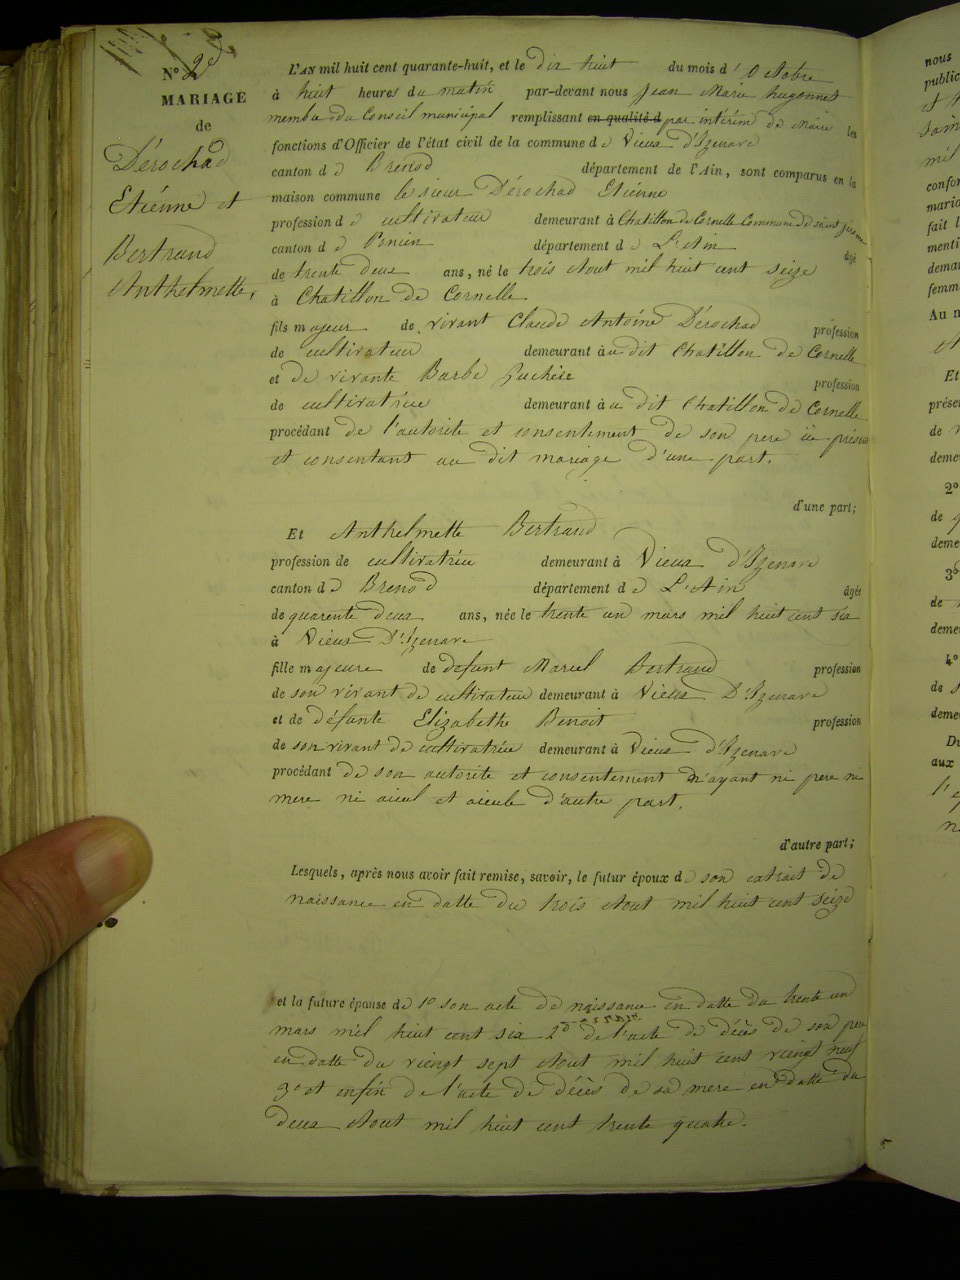 N° 2
MARIAGE
de
Dérochad
Etiénne et
Bertrand
Anthelmette,
L'AN mil huit cent quarante-huit, et le dix huit du mois d'Octobre
à huit heures du matin par-devant nous Jean Marie hugonnet
membre du Conseil municipal remplissant en qualité d par intérim de Maire les
fonctions d'Officier de l'état civil de la commune de Vieux d'Izenave
canton de Brenod département de l'Ain, sont comparus en la
maison commune le sieur Dérochad Etiénne
profession de cultivateur demeurant à Chatillon de Cornelle Commune de saint jerome
canton de Poncin département de L'Ain âgé
de trente deux ans, né le trois Aout mil huit cent seize
à Chatillon de Cornelle
fils majeur de vivant Claude Antoine Dérochad profession
de cultivateur demeurant au dit Chatillon de Cornelle
et de vivante Barbe profession
de cultivatrice demeurant au dit Chatillon de Cornelle
procédant de l'autorité et consentement de son pere présent
et consentant au dit mariage d'une part.
d'une part;
Et Anthelmette Bertrand
profession de cultivatrice demeurant à Vieux d'Izenave
canton de Brenod département de L'Ain âgée
de quarente deux ans, née le trente un mars mil huit cent six
à Vieux D'Izenave
fille majeure de defunt Marcel Bertrand profession
de son vivant de cultivateur demeurant à Vieux D'Izenave
et de défunte Elizabethe Benoit profession
de son vivant de cultivatrice demeurant à Vieux d'Izenave
procédant de son autorité et consentement n'ayant ni pere ni
mere ni aieul et aieule d'autre part.
d'autre part;
Lesquels, après nous avoir fait remise, savoir, le futur époux de son extrait de
naissance en datte du trois Aout mil huit cent seize
et la future épouse de 1° son acte de naissance en datte du trente un
mars mil huit cent six 2° de l'acte de décès de son pere
en datte du viengt sept Aout mil huit cent viengt neuf
3° et enfin de l'acte de décès de sa mere en datte du
deux Aout mil huit cent trente quatre.
nous
public
mil
confor
maria
fait l
menti
deman
femm
Au n
Et
présen
de
deme
2°
de
deme
3°
de
deme
4°
de
deme
Du
aux